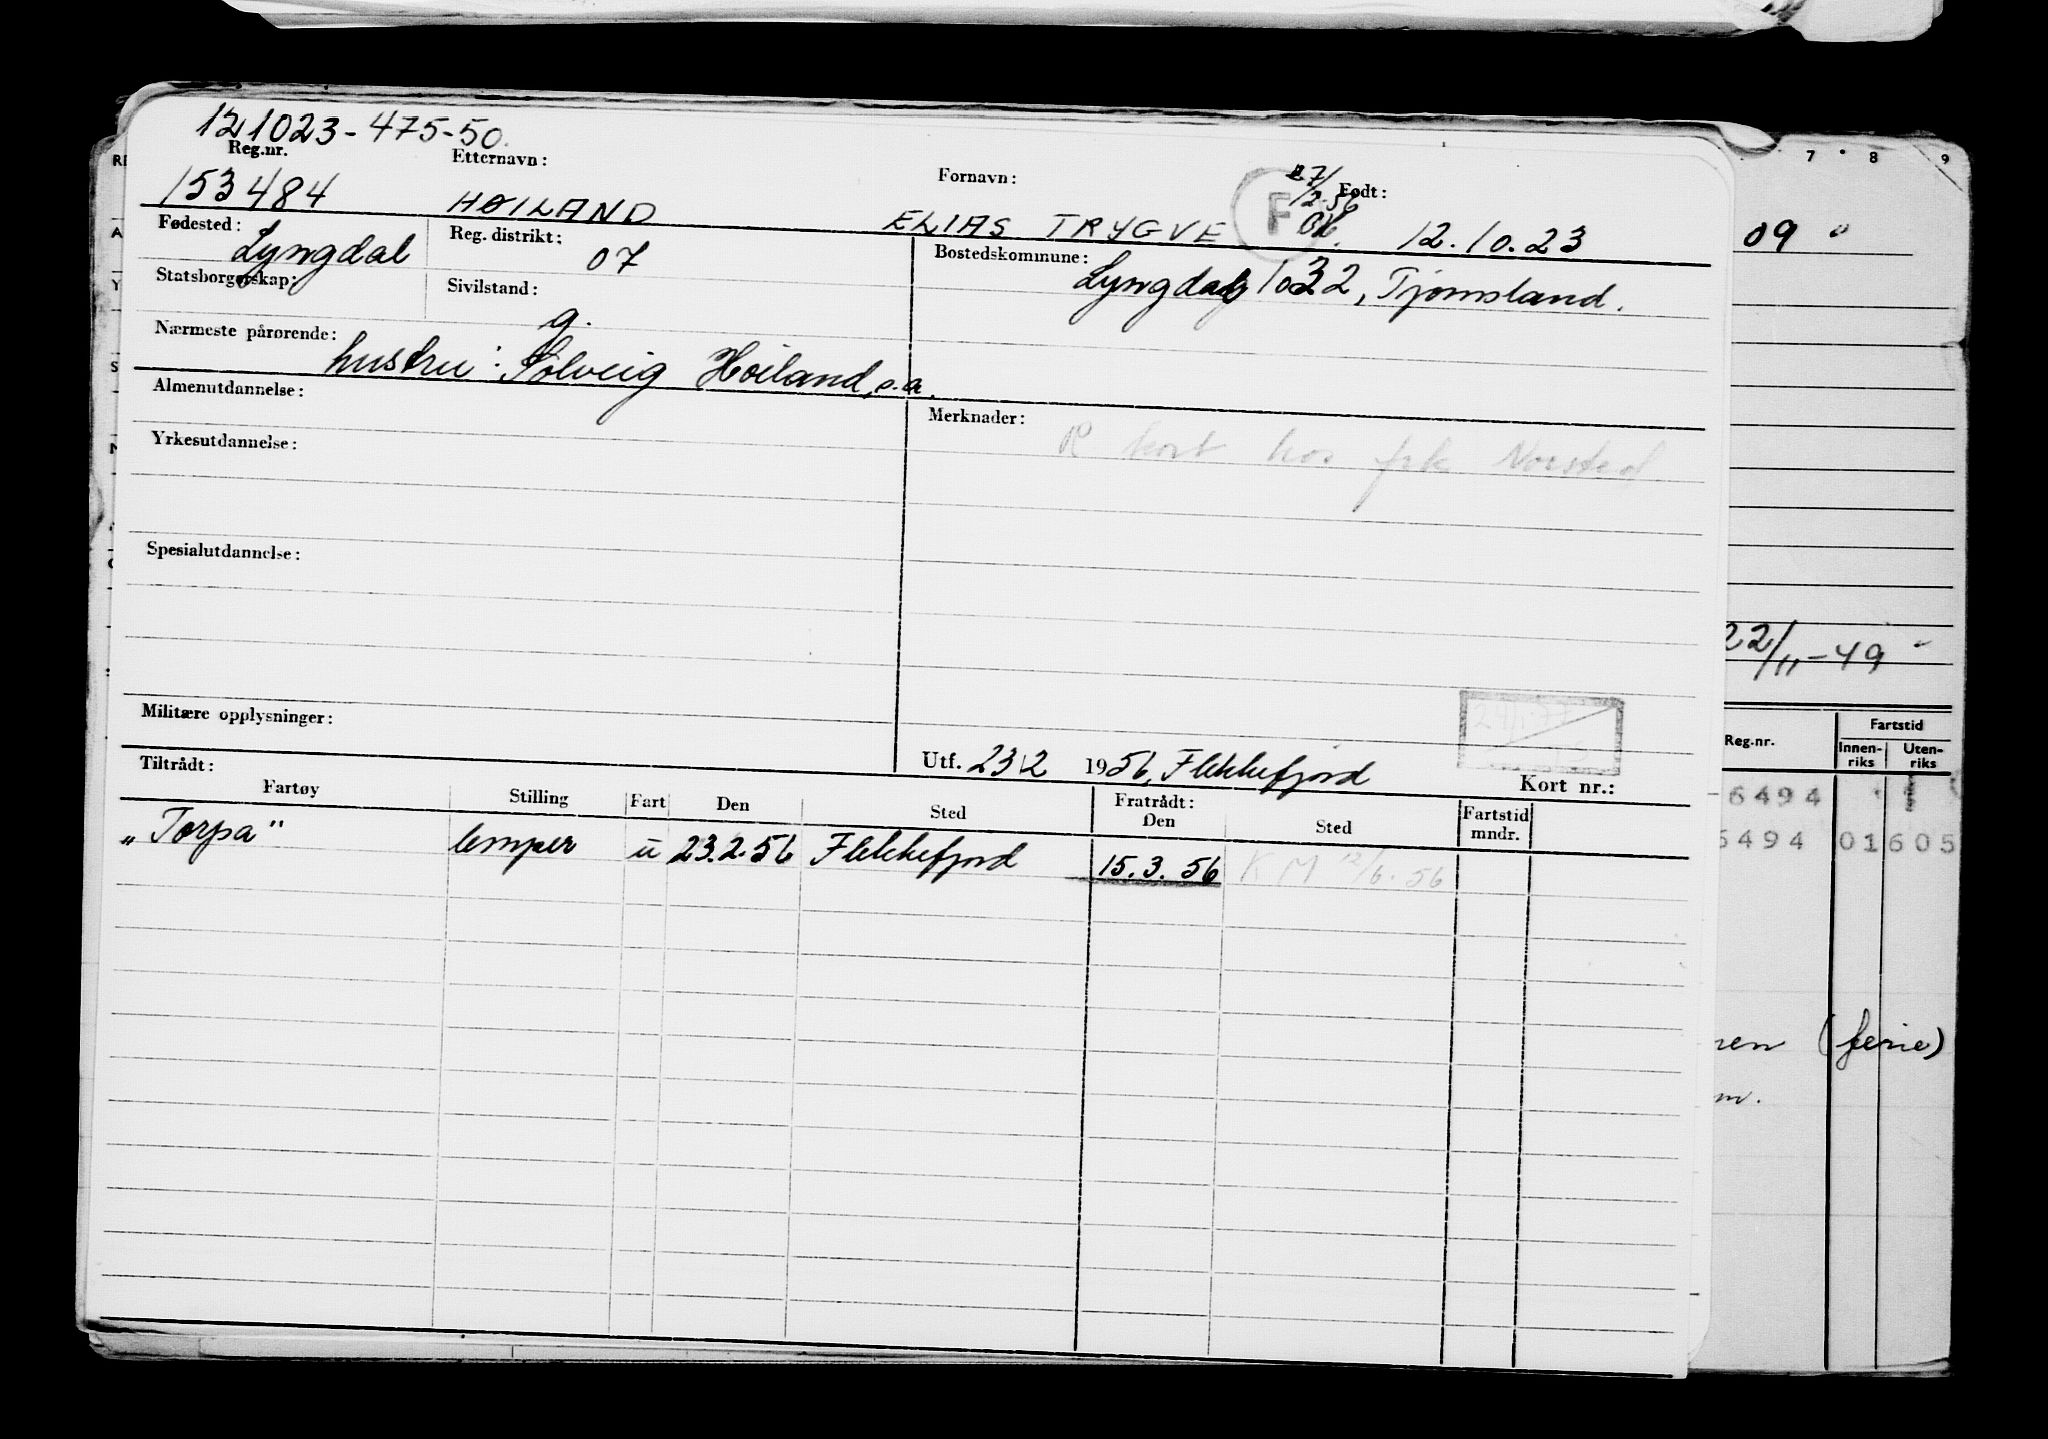 121023-475-50.
Reg.nr. Etternavn: Fornavn: Født:
153484 HØILAND ELIAS TRYGVE F 27/2-56 12.10.23
Fødested: Lyngdal Reg. distrikt: 07 Bostedskommune: Lyngdal 1032, Tjomsland.
Statsborgerskap: Sivilstand: g.
Nærmeste pårørende: hustru: Solveig Høiland, s.a.
Almenutdannelse: Merknader:
R kort hos frk Norsted
Yrkesutdannelse:
Spesialutdannelse:
Militære opplysninger:
Utf. 23\2 1956, Flekkefjord
Tiltrådt: Kort nr.:
Fartøy Stilling Fart Den Sted Fratrådt: Den Sted Fartstid mndr.
"Torpa" lemper u 23.2.56 Flekkefjord 15.3.56 K M 12/6.56
7 8 9
09
22/11-49
Reg.nr. Fartstid
Innen-riks Uten-riks
6494
6494 01605
(ferie)
m.